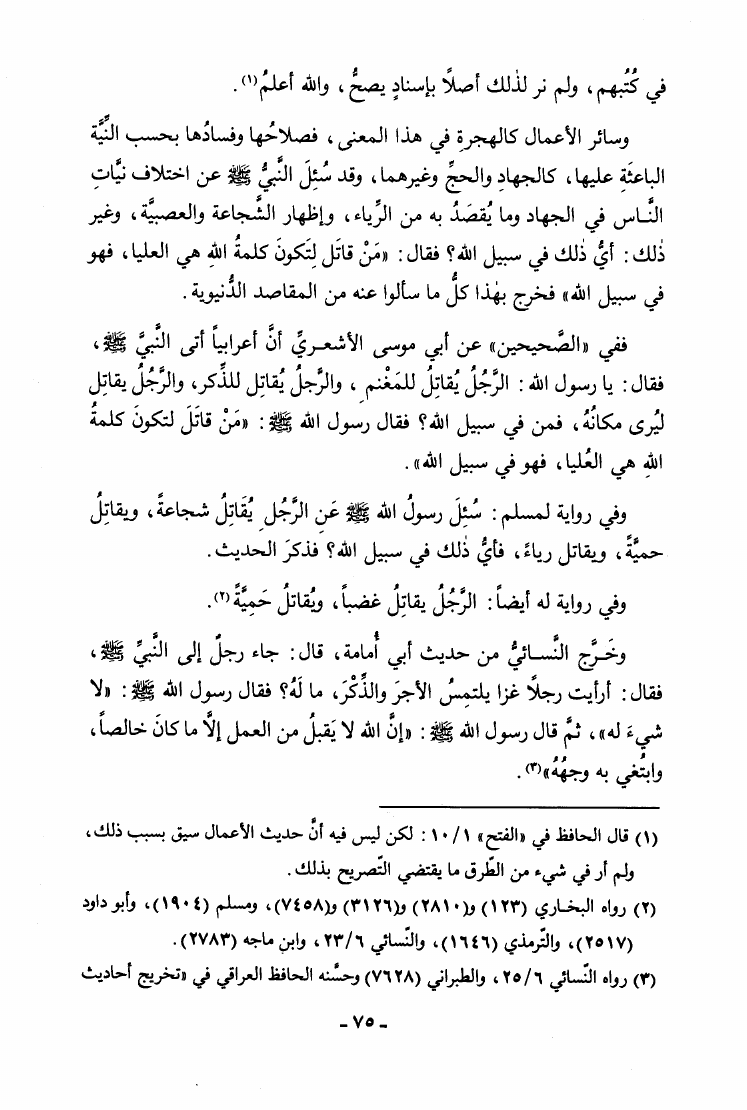 في كُتُبهم، ولم نر لذٰلك أصلًا بإسنادٍ يصحُّ، والله أعلمُ(١).
وسائر الأعمال كالهجرةِ في هذا المعنى، فصلاحُها وفسادُها بحسب النِّيَّة
الباعثَةِ عليها، كالجهادِ والحجِّ وغيرهما، وقد سُئِلَ النَّبيُّ ﷺ عن اختلاف نيَّاتِ
النَّـاس في الجهاد وما يُقصَدُ به من الرِّياء، وإظهار الشَّجاعة والعصبيَّة، وغير
ذٰلك: أيُّ ذٰلك في سبيل الله؟ فقال: «مَنْ قاتَل لِتَكونَ كلمةُ اللهِ هي العليا، فهو
في سبيل الله» فخرج بهٰذا كلُّ ما سألوا عنه من المقاصد الدُّنيوية.
ففي «الصَّحيحين» عن أبي موسى الأشعـريِّ أنَّ أعرابياً أتى النَّبيَّ ﷺ،
فقال: يا رسول الله: الرَّجُلُ يُقاتِلُ للمَغْنمِ، والرَّجلُ يُقاتِل للذِّكر، والرَّجُلُ يقاتِل
ليُرى مكانُهُ، فمن في سبيل الله؟ فقال رسول الله ﷺ: «مَنْ قاتَلَ لتكونَ كلمةُ
اللهِ هي العُليا، فهو في سبيل الله».
وفي رواية لمسلم: سُئِلَ رسولُ الله ﷺ عَنِ الرَّجُلِ يُقَاتِلُ شجاعةً، ويقاتِلُ
حميَّةً، ويقاتل رياءً، فأيُّ ذٰلك في سبيل الله؟ فذكرَ الحديث.
وفي رواية له أيضاً: الرَّجُلُ يقاتِلُ غضباً، ويُقاتلُ حَمِيَّةً(٢).
وخَـرَّج النَّسـائيُّ من حديث أبي أُمامة، قال: جاء رجلٌ إلى النَّبيِّ ﷺ،
فقال: أرأيت رجلًا غزا يلتمِسُ الأجرَ والذِّكْرَ، ما لَهُ؟ فقال رسول الله ﷺ: «لا
شيءَ له»، ثمَّ قال رسول الله ﷺ: «إنَّ الله لا يَقبلُ من العمل إلَّا ما كانَ خالصاً،
وابتُغي به وجهُهُ»(٣).
(١) قال الحافظ في «الفتح» ١٠/١: لكن ليس فيه أنَّ حديث الأعمال سيق بسبب ذلك،
ولم أر في شيء من الطّرق ما يقتضي التّصريح بذلك.
(٢) رواه البخـاري (١٢٣) و(٢٨١٠) و(٣١٢٦) و(٧٤٥٨)، ومسلم (١٩٠٤)، وأبو داود
(٢٥١٧)، والتّرمذي (١٦٤٦)، والنّسائي ٢٣/٦، وابن ماجه (٢٧٨٣).
(٣) رواه النّسائي ٢٥/٦، والطبراني (٧٦٢٨) وحسَّنه الحافظ العراقي في «تخريج أحاديث
- ٧٥ -